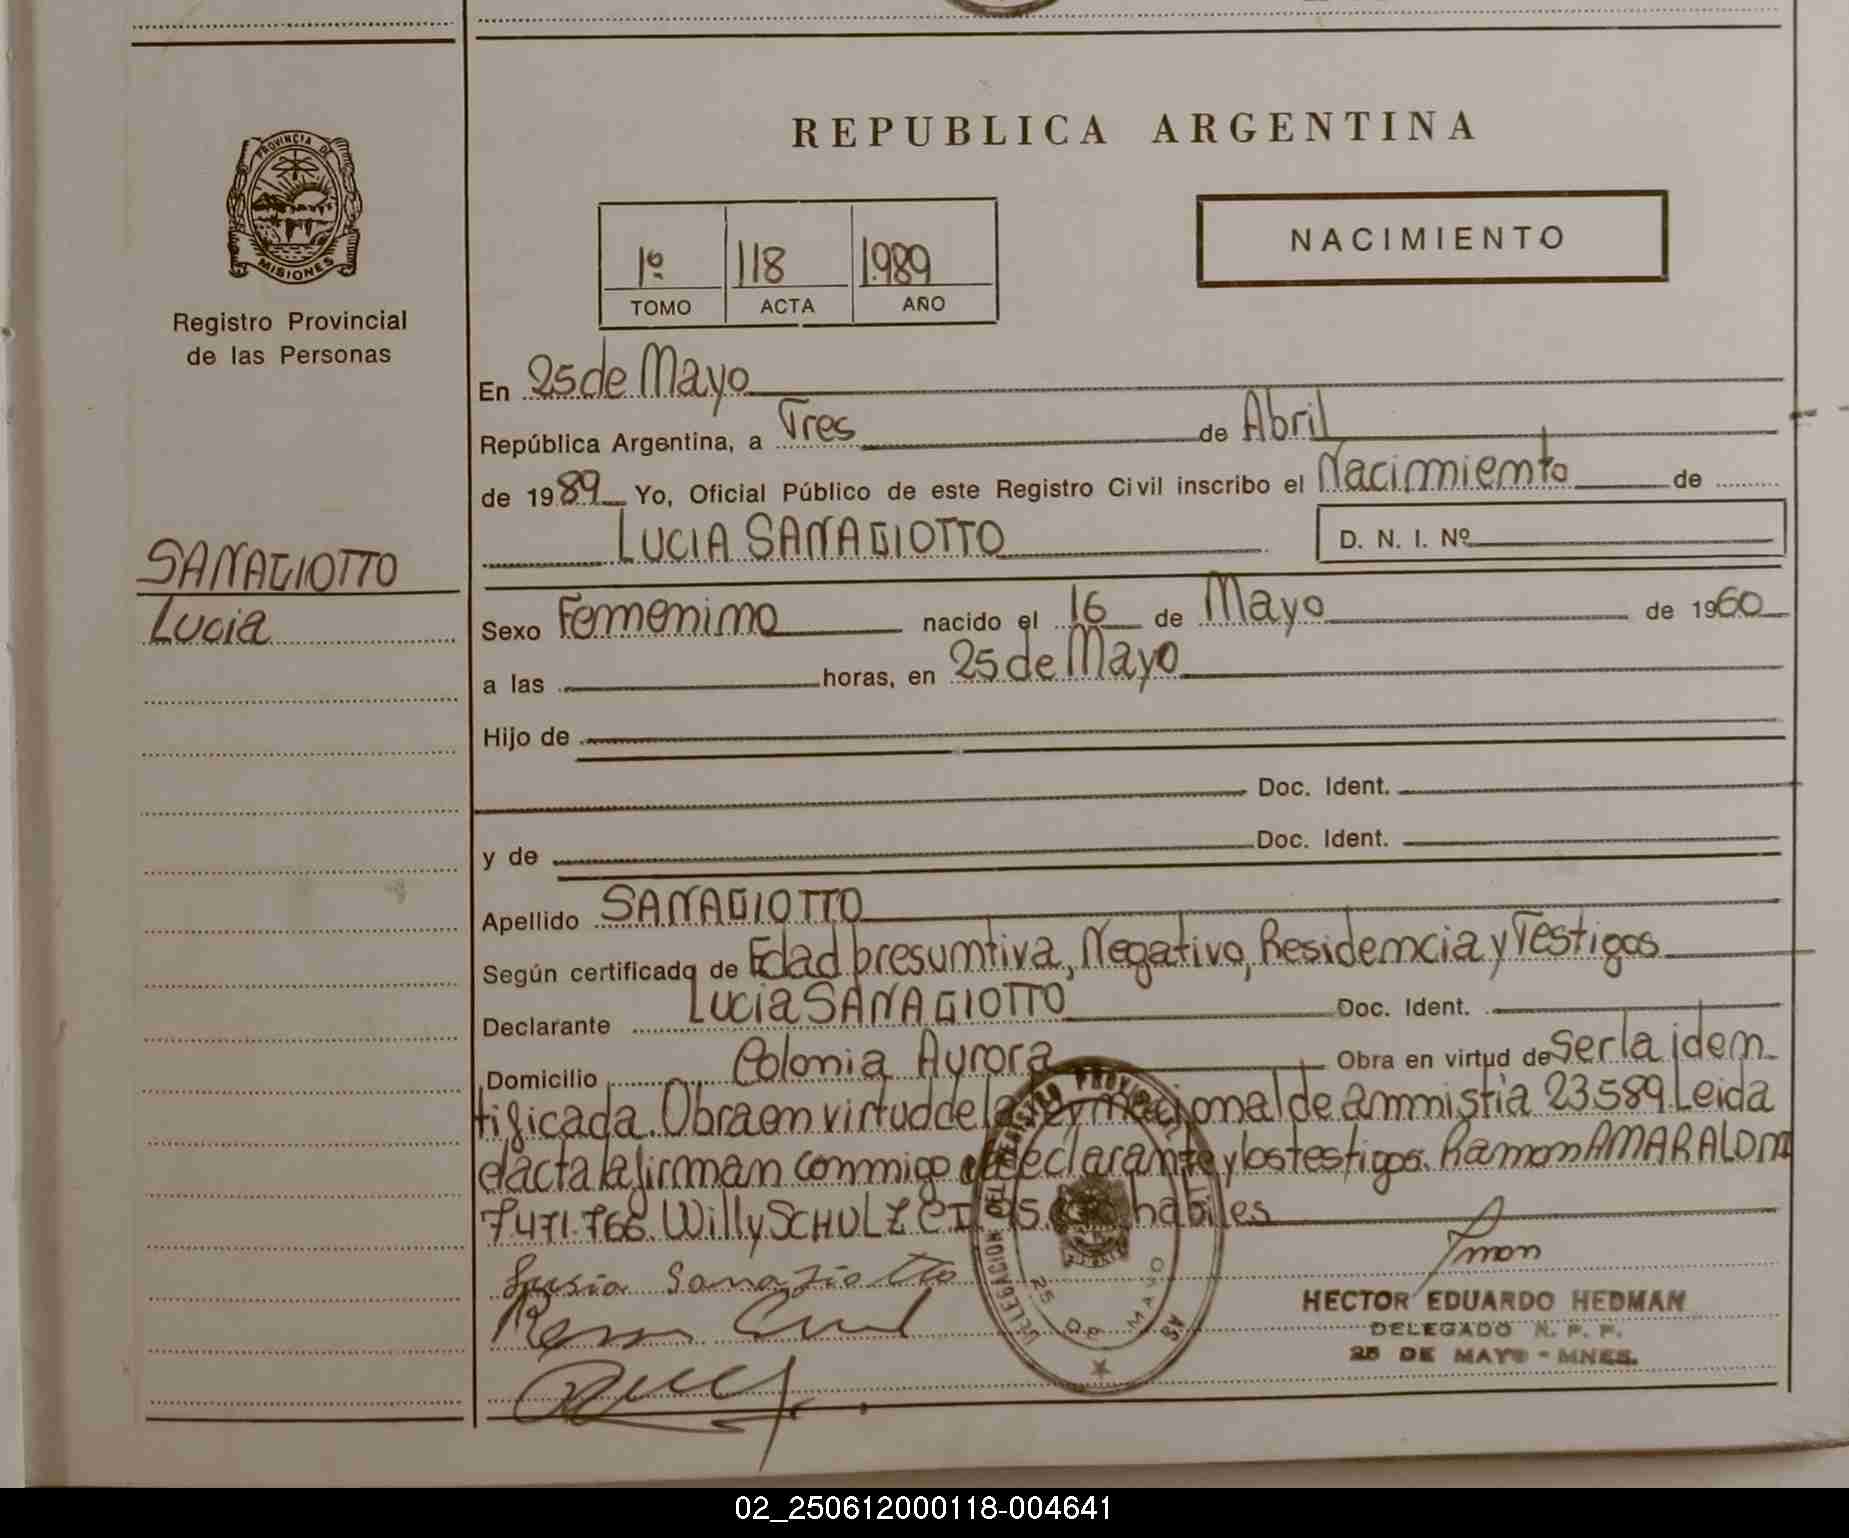 PROVINCIA DE
MISIONES
Registro Provincial
de las Personas
SANAGIOTTO
Lucia
REPUBLICA ARGENTINA
1º 118 1989
TOMO ACTA AÑO
NACIMIENTO
En 25 de Mayo
República Argentina, a Tres de Abril
de 1989 Yo, Oficial Público de este Registro Civil inscribo el Nacimiento de
LUCIA SANAGIOTTO D. N. I. Nº
Sexo Femenino nacido el 16 de Mayo de 1960
a las horas, en 25 de Mayo
Hijo de
Doc. Ident.
y de Doc. Ident.
Apellido SANAGIOTTO
Según certificado de Edad presumtiva, Negativo, Residencia y Testigos
Declarante Lucia SANAGIOTTO Doc. Ident.
Domicilio Colonia Aurora Obra en virtud de ser la iden-
tificada. Obra en virtud de la Ley nacional de amnistia 23.589. Leida
el acta la firman conmigo el declarante y los testigos. Ramon AMARAL DNI
7.471.766. Willy SCHULZ habiles
Lusia Sanagiotto
HECTOR EDUARDO HEDMAN
DELEGADO R. P. P.
25 DE MAYO - MNES.
DELEGACION DEL REGISTRO PROVINCIAL
25 DE MAYO
02_250612000118-004641